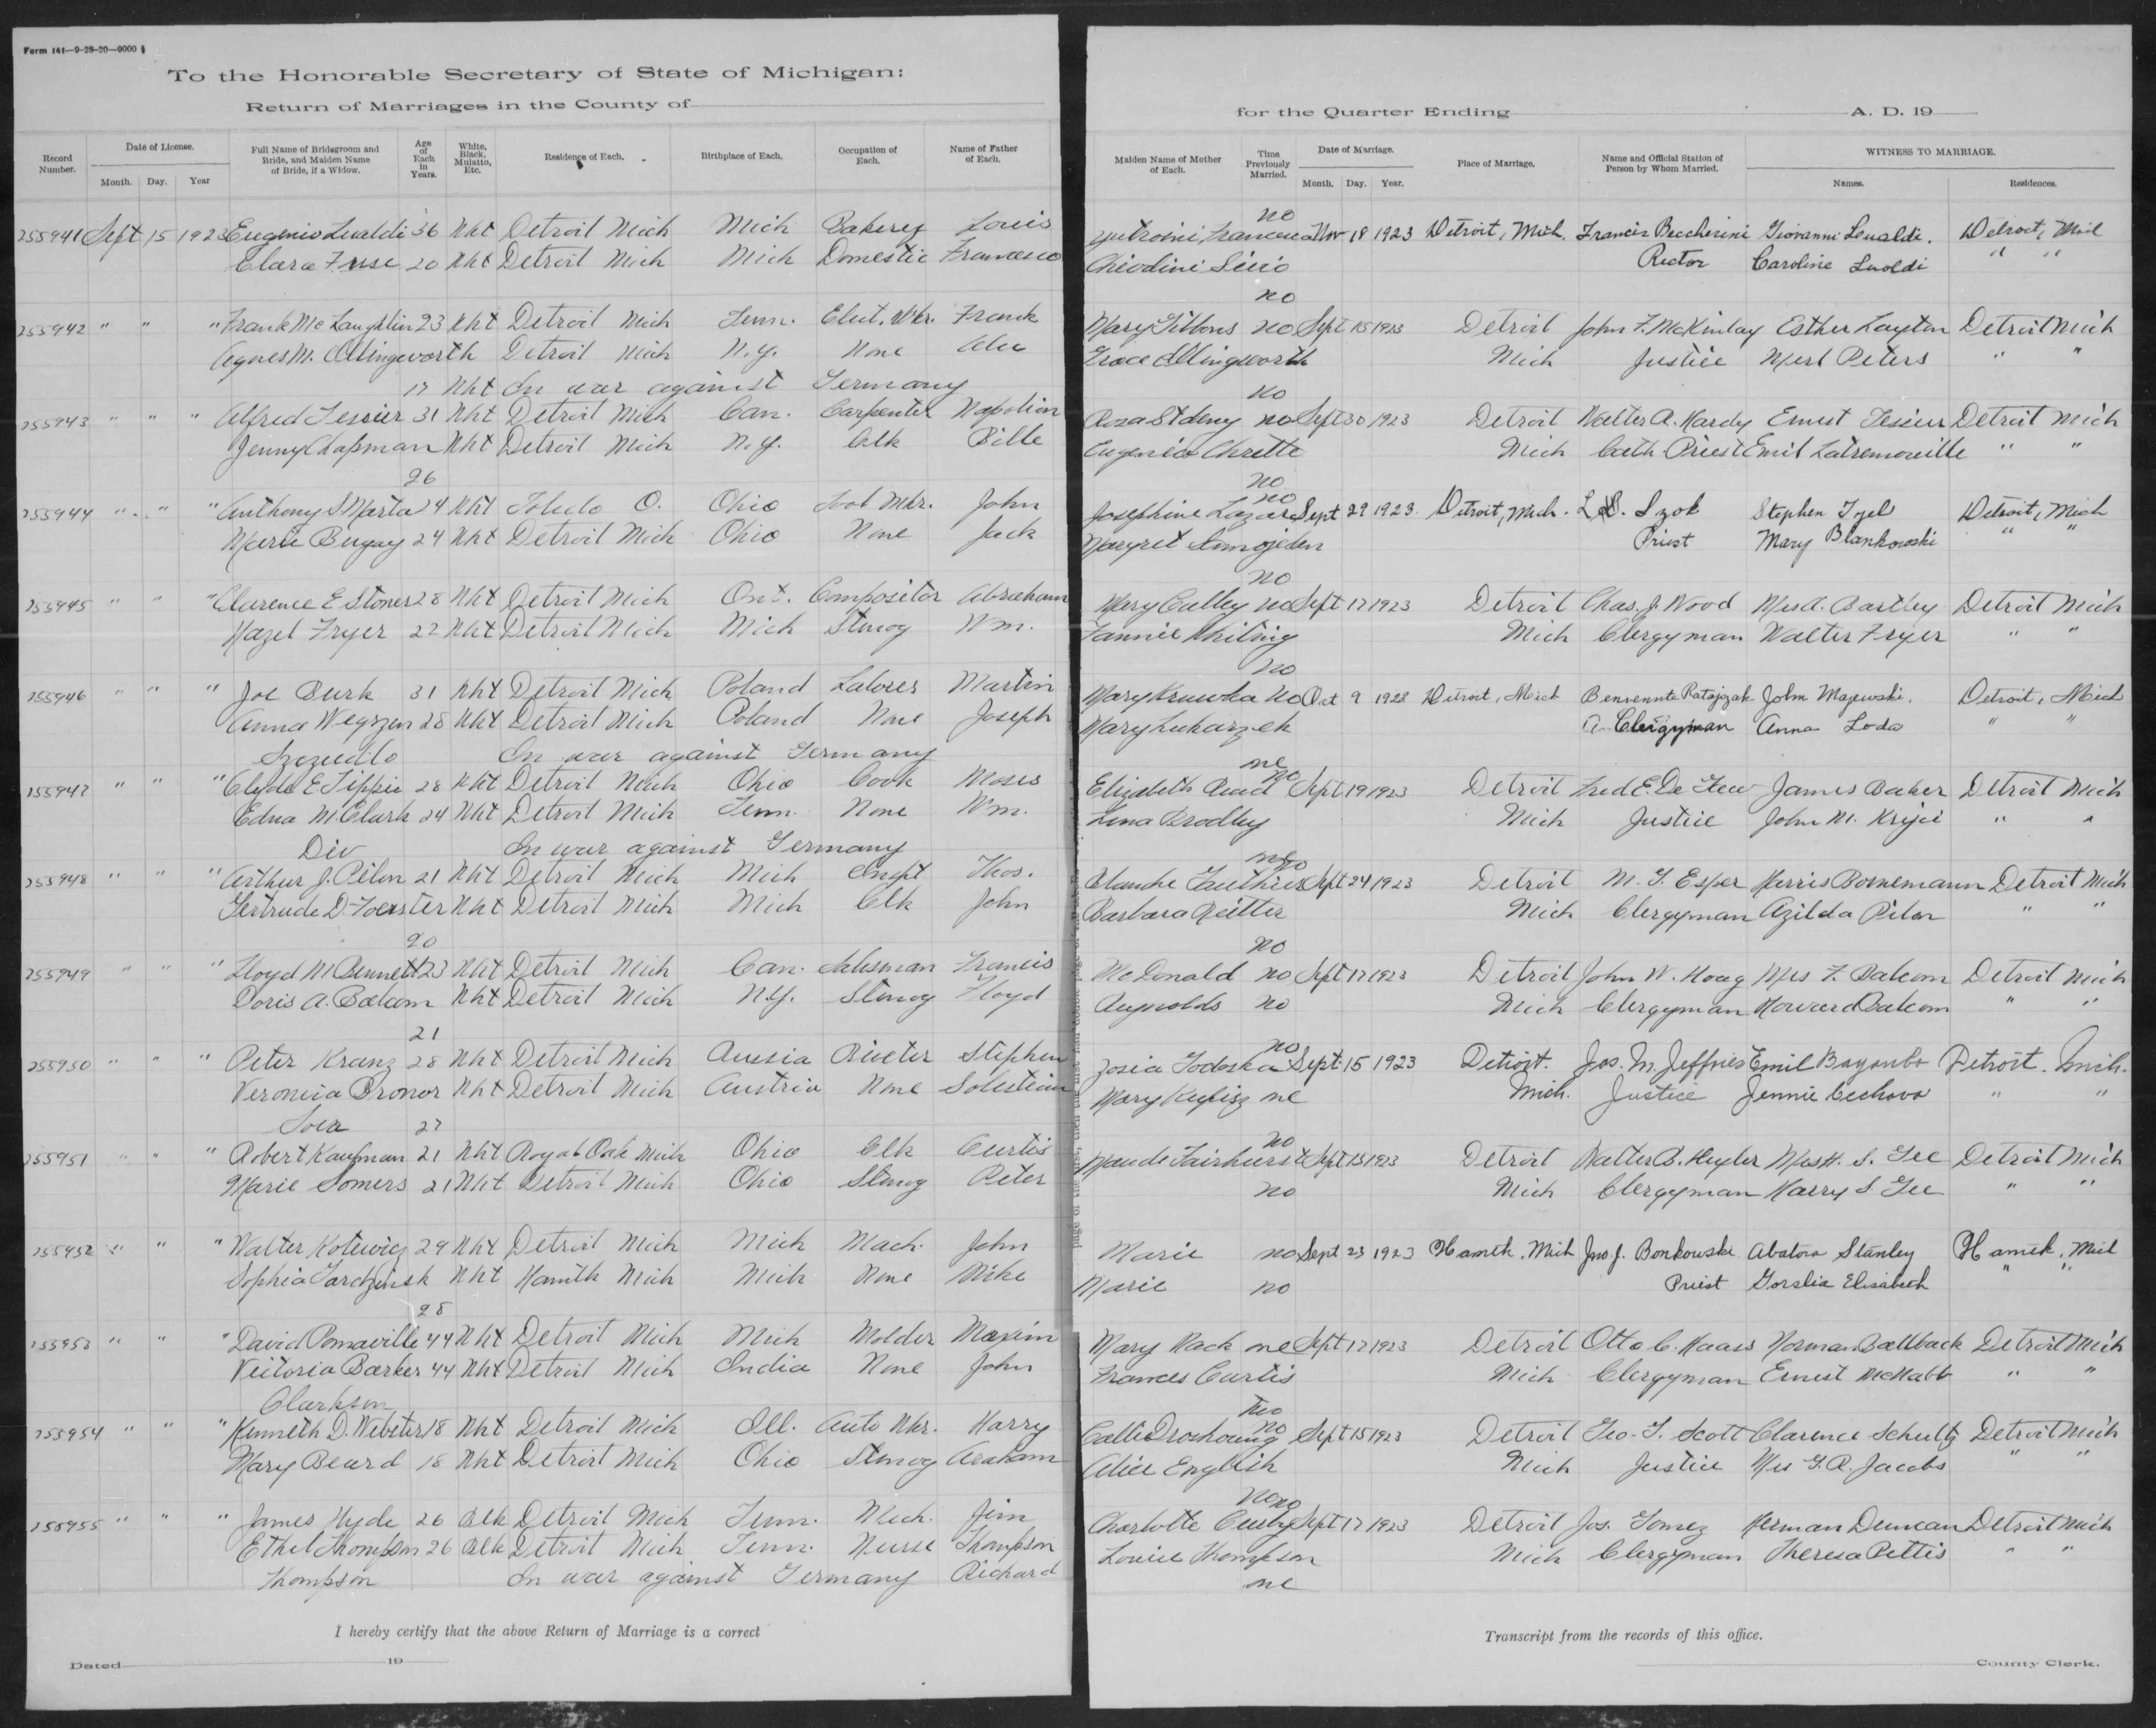 Form 141—9-28-20—9000
To the Honorable Secretary of State of Michigan:
Return of Marriages in the County of
for the Quarter Ending A. D. 19
Record Number. Date of License. Month. Day. Year Full Name of Bridegroom and Bride, and Maiden Name of Bride, if a Widow. Age of Each in Years. White, Black, Mulatto, Etc. Residence of Each. Birthplace of Each. Occupation of Each. Name of Father of Each.
Maiden Name of Mother of Each. Time Previously Married. Date of Marriage. Month. Day. Year. Place of Marriage. Name and Official Station of Person by Whom Married. WITNESS TO MARRIAGE. Names. Residences.
no
255941 Sept 15 1923 Eugenio Lualdi 36 Wht Detroit Mich Mich Bakery Louis Francesca Nov 18 1923 Detroit, Mich. Francis Beccherini Giovanni Lualdi. Detroit, Mich
Clara 20 Wht Detroit Mich Mich Domestic Francesco Rector Caroline Lualdi " "
no
255942 " " " Frank McLaughlin 23 Wht Detroit Mich Tenn. Elect. Wkr. Frank Mary Gibbons no Sept 15 1923 Detroit John F. McKinlay Esther Layton Detroit Mich
Agnes M. Illingworth Detroit Mich N.Y. None Alec Grace Illingworth Mich Justice Merl Peters " "
17 Wht In war against Germany
no
255943 " " " Alfred Tessier 31 Wht Detroit Mich Can. Carpenter Napolion Rosa St deny no Sept 30 1923 Detroit Walter A. Hardy Ernest Tesier Detroit Mich
Jenny Chapman Wht Detroit Mich N.Y. Clk Bille Eugenia Chrette Mich Cath. Priest Emil Latremouille " "
26
no
no
255944 " " " Anthony S Marta 24 Wht Toledo O. Ohio Tool Mkr. John Josephine Lazar Sept 29 1923. Detroit, Mich. Szok Stephen Izel Detroit, Mich
Marie Bugay 24 Wht Detroit Mich Ohio None Jack Margret Priest Mary Blankowski " "
no
255945 " " " Clarence E Stoner 28 Wht Detroit Mich Ont. Compositor Abraham Mary Culley no Sept 17 1923 Detroit Chas. J. Wood Mrs A. Bartley Detroit Mich
Hazel Fryer 22 Wht Detroit Mich Mich Stenog Wm. Fannie Whiting Mich Clergyman Walter Fryer " "
no
255946 " " " Joe Burk 31 Wht Detroit Mich Poland Laborer Martin Mary Kruwka no Oct 9 1923 Detroit, Mich Benvenute Ratajzak John Majewski. Detroit, Mich
Anna Wegrzen 28 Wht Detroit Mich Poland None Joseph Mary Lukarzek Clergyman Anna Loda " "
In war against Germany
no
255947 " " " Clyde E Tippie 28 Wht Detroit Mich Ohio Cook Moses Elizabeth no Sept 19 1923 Detroit Fred E. De Gew James Baker Detroit Mich
Edna M. Clark 24 Wht Detroit Mich Tenn. None Wm. Lena Bradley Mich Justice John M. Krijci " "
Div In war against Germany
255948 " " " Arthur J. Pilon 21 Wht Detroit Mich Mich Inspt Thos. Blanche no Sept 24 1923 Detroit M. J. Esper Herris Bornemann Detroit Mich
Gertrude D. Foerster Wht Detroit Mich Mich Clk John Barbara Reitter Mich Clergyman Azilda Pilon " "
20
no
255949 " " " Lloyd M Bennett 23 Wht Detroit Mich Can. Salesman Francis McDonald no Sept 17 1923 Detroit John W. Hoag Mrs F. Balcom Detroit Mich
Doris A. Balcom Wht Detroit Mich N.Y. Stenog Floyd Reynolds no Mich Clergyman Howard Balcom " "
21
no
255950 " " " Peter Kranz 28 Wht Detroit Mich Russia Riveter Stephen Zosia Todoska Sept. 15 1923 Detroit. Jas. M. Jeffries Emil Detroit. Mich.
Veronica Bronor Wht Detroit Mich Austria None Mary no Mich. Justice Jennie Cechova " "
27
no
255951 " " " Robert Kaufman 21 Wht Royal Oak Mich Ohio Clk Curtis Maude Fairhurst Sept 15 1923 Detroit Walter B. Heyler Mrs H. S. Gee Detroit Mich
Marie Somers 21 Wht Detroit Mich Ohio Stenog Peter no Mich Clergyman Harry S. Gee " "
255952 " " " Walter Kotewicz 29 Wht Detroit Mich Mich Mach. John Marie no Sept 23 1923 Hamtk. Mich Jno. J. Bonkowski Stanley Hamtk. Mich
Sophia Wht Hamtk Mich Mich None Mike Marie no Priest Elisabeth " "
28
255953 " " " David Pomaville 44 Wht Detroit Mich Mich Molder Maxim Mary Rack no Sept 17 1923 Detroit Otto C. Haass Norman Detroit Mich
Victoria Barker 44 Wht Detroit Mich India None John Frances Curtis Mich Clergyman Ernest McNabb " "
Clarkson
no
255954 " " " Kenneth D. Webster 18 Wht Detroit Mich Ill. Auto Wkr. Harry Callie no Sept 15 1923 Detroit Geo. T. Scott Clarence Schultz Detroit Mich
Mary Beard 18 Wht Detroit Mich Ohio Stenog Araham Alice English Mich Justice Mrs G. R. Jacobs " "
no no
255955 " " " James Hyde 26 Blk Detroit Mich Tenn. Mech. Jim Charlotte Sept 17 1923 Detroit Jos. Gomez Herman Duncan Detroit Mich
Ethel Thompson 26 Blk Detroit Mich Tenn. Nurse Thompson Louise Thompson Mich Clergyman Theresa Pettis " "
Thompson In war against Germany Richard no
I hereby certify that the above Return of Marriage is a correct Transcript from the records of this office.
Dated 19 County Clerk.